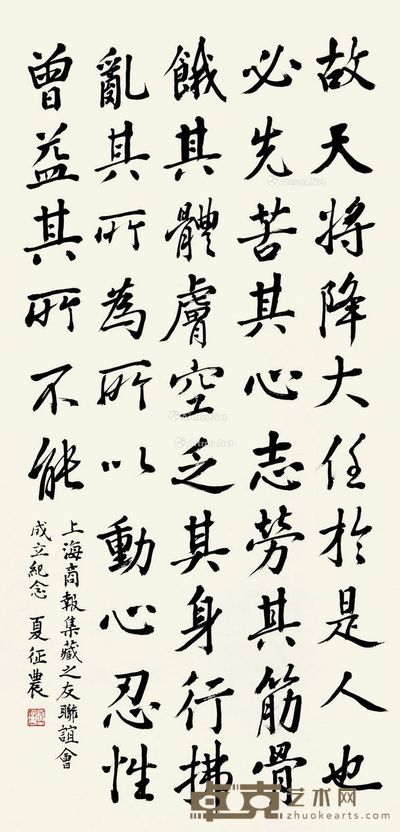 故天將降大任於是人也
必先苦其心志勞其筋骨
餓其體膚空乏其身行拂
亂其所為所以動心忍性
曾益其所不能
上海商報集藏之友聯誼會
成立紀念 夏征農
卓克艺术网
zhuokearts.com